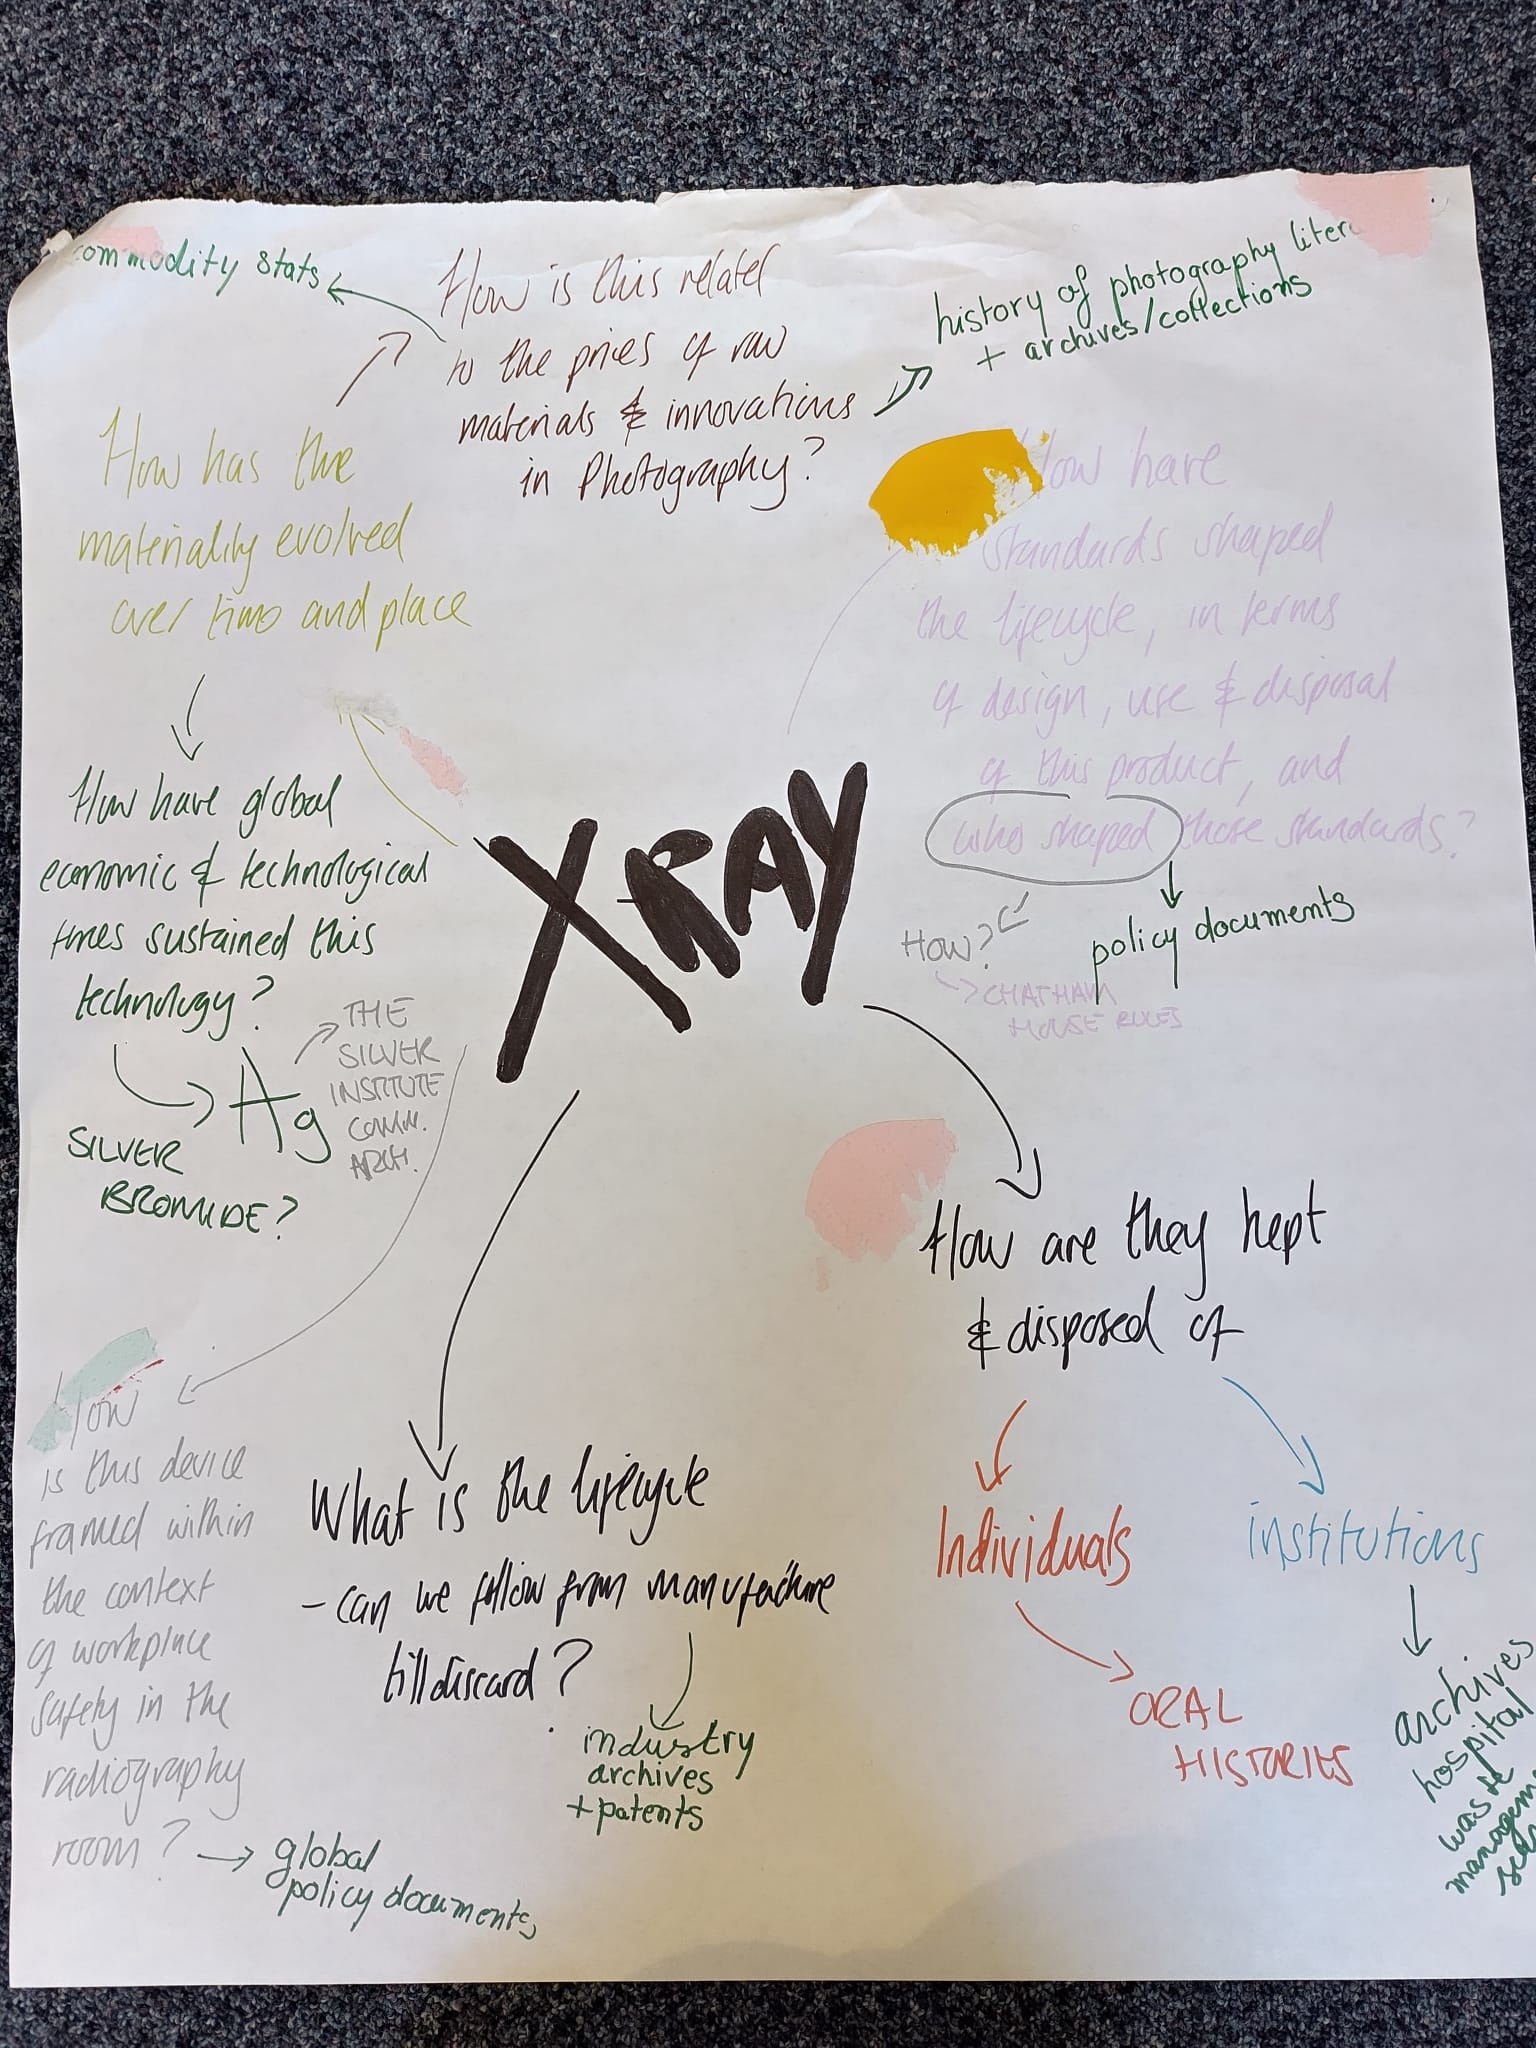 commodity stats
How is this related
to the prices of raw
materials & innovations
in Photography?
history of photography
+ archives/collections
How has the
materiality evolved
over time and place
How have
standards shaped
the lifecycle, in terms
of design, use & disposal
of this product, and
who shaped those standards?
How?
CHATHAM
HOUSE RULES
policy documents
How have global
economic & technological
sustained this
technology?
Ag
SILVER
BROMIDE?
THE
SILVER
INSTITUTE
COMM.
ARCH.
X-RAY
How are they kept
& disposed of
Individuals
ORAL
HISTORIES
institutions
archives
hospital
waste
What is the lifecycle
- can we follow from manufacture
till discard?
industry
archives
+ patents
How
is this device
framed within
the context
of workplace
safety in the
radiography
room?
global
policy documents